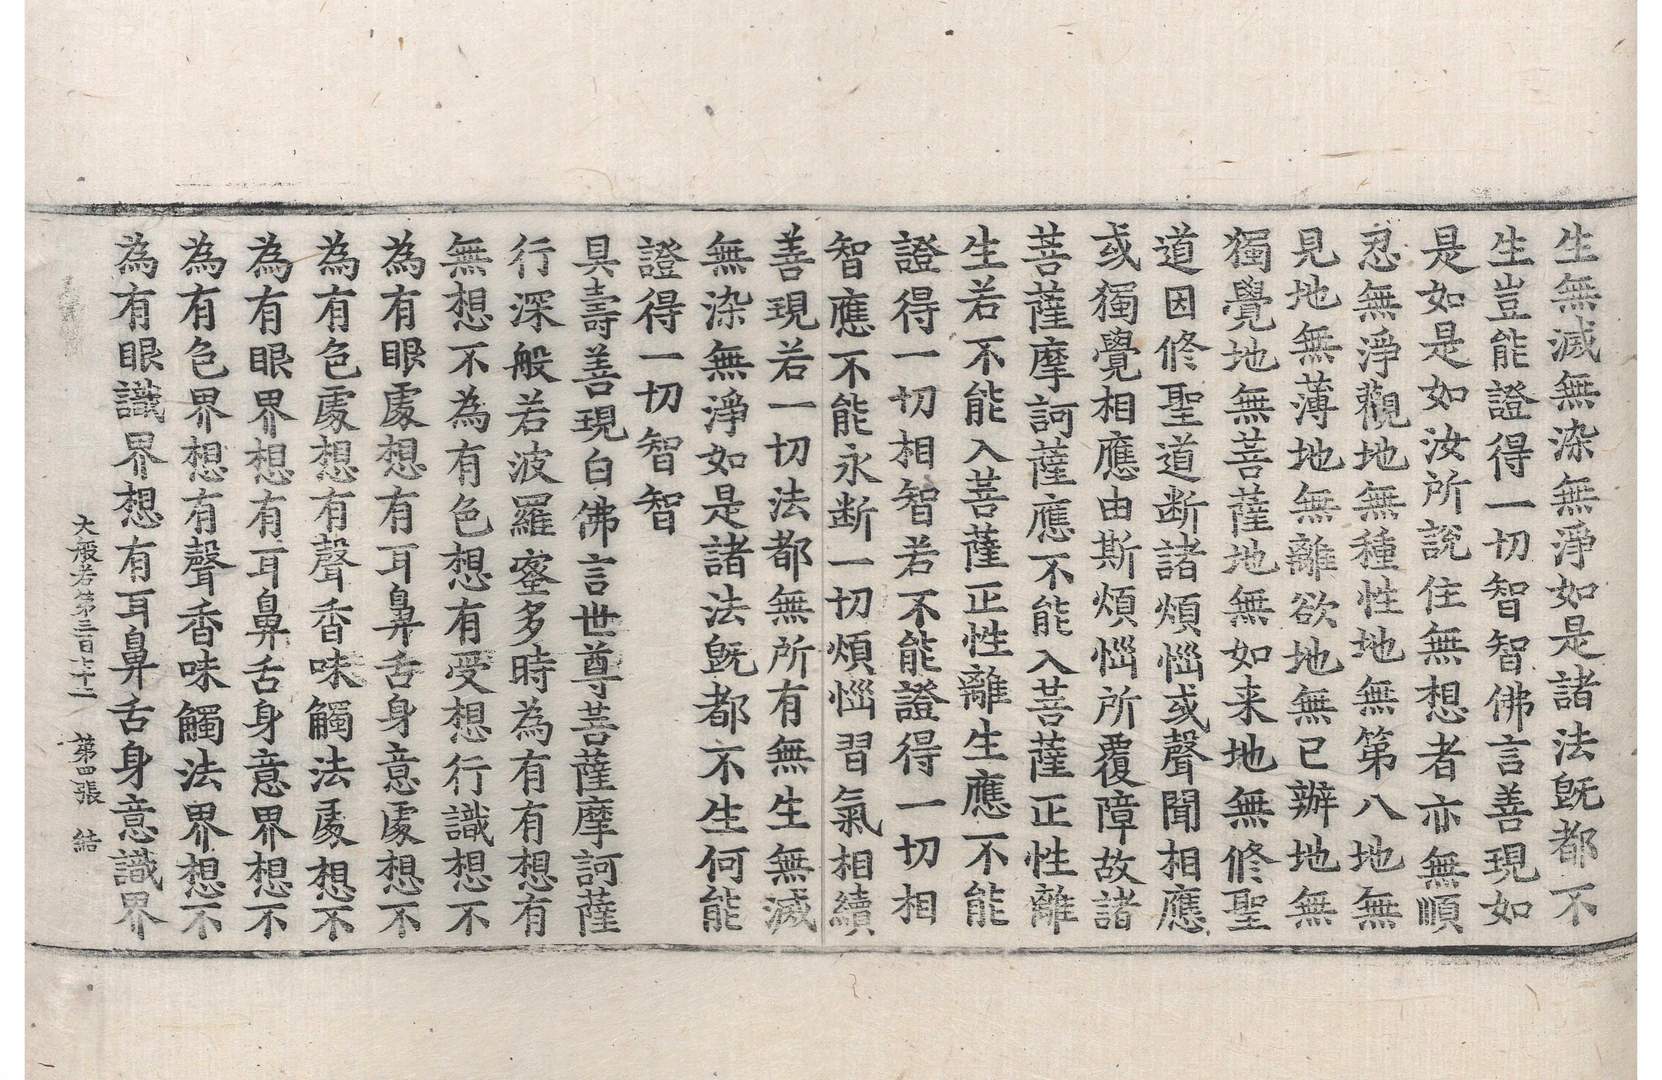 生無滅無染無淨如是諸法旣都不
生豈能證得一切智智佛言善現如
是如是如汝所說住無想者亦無順
忍無淨觀地無種性地無第八地無
見地無薄地無離欲地無已辦地無
獨覺地無菩薩地無如来地無修聖
道因修聖道断諸煩惱或聲聞相應
或獨覺相應由斯煩惱所覆障故諸
菩薩摩訶薩應不能入菩薩正性離
生若不能入菩薩正性離生應不能
證得一切相智若不能證得一切相
智應不能永断一切煩惱習氣相續
善現若一切法都無所有無生無滅
無染無淨如是諸法旣都不生何能
證得一切智智
具壽善現白佛言世尊菩薩摩訶薩
行深般若波羅蜜多時為有有想有
無想不為有色想有受想行識想不
為有眼處想有耳鼻舌身意處想不
為有色處想有聲香味觸法處想不
為有眼界想有耳鼻舌身意界想不
為有色界想有聲香味觸法界想不
為有眼識界想有耳鼻舌身意識界
大般若第三百七十二 第四張 結